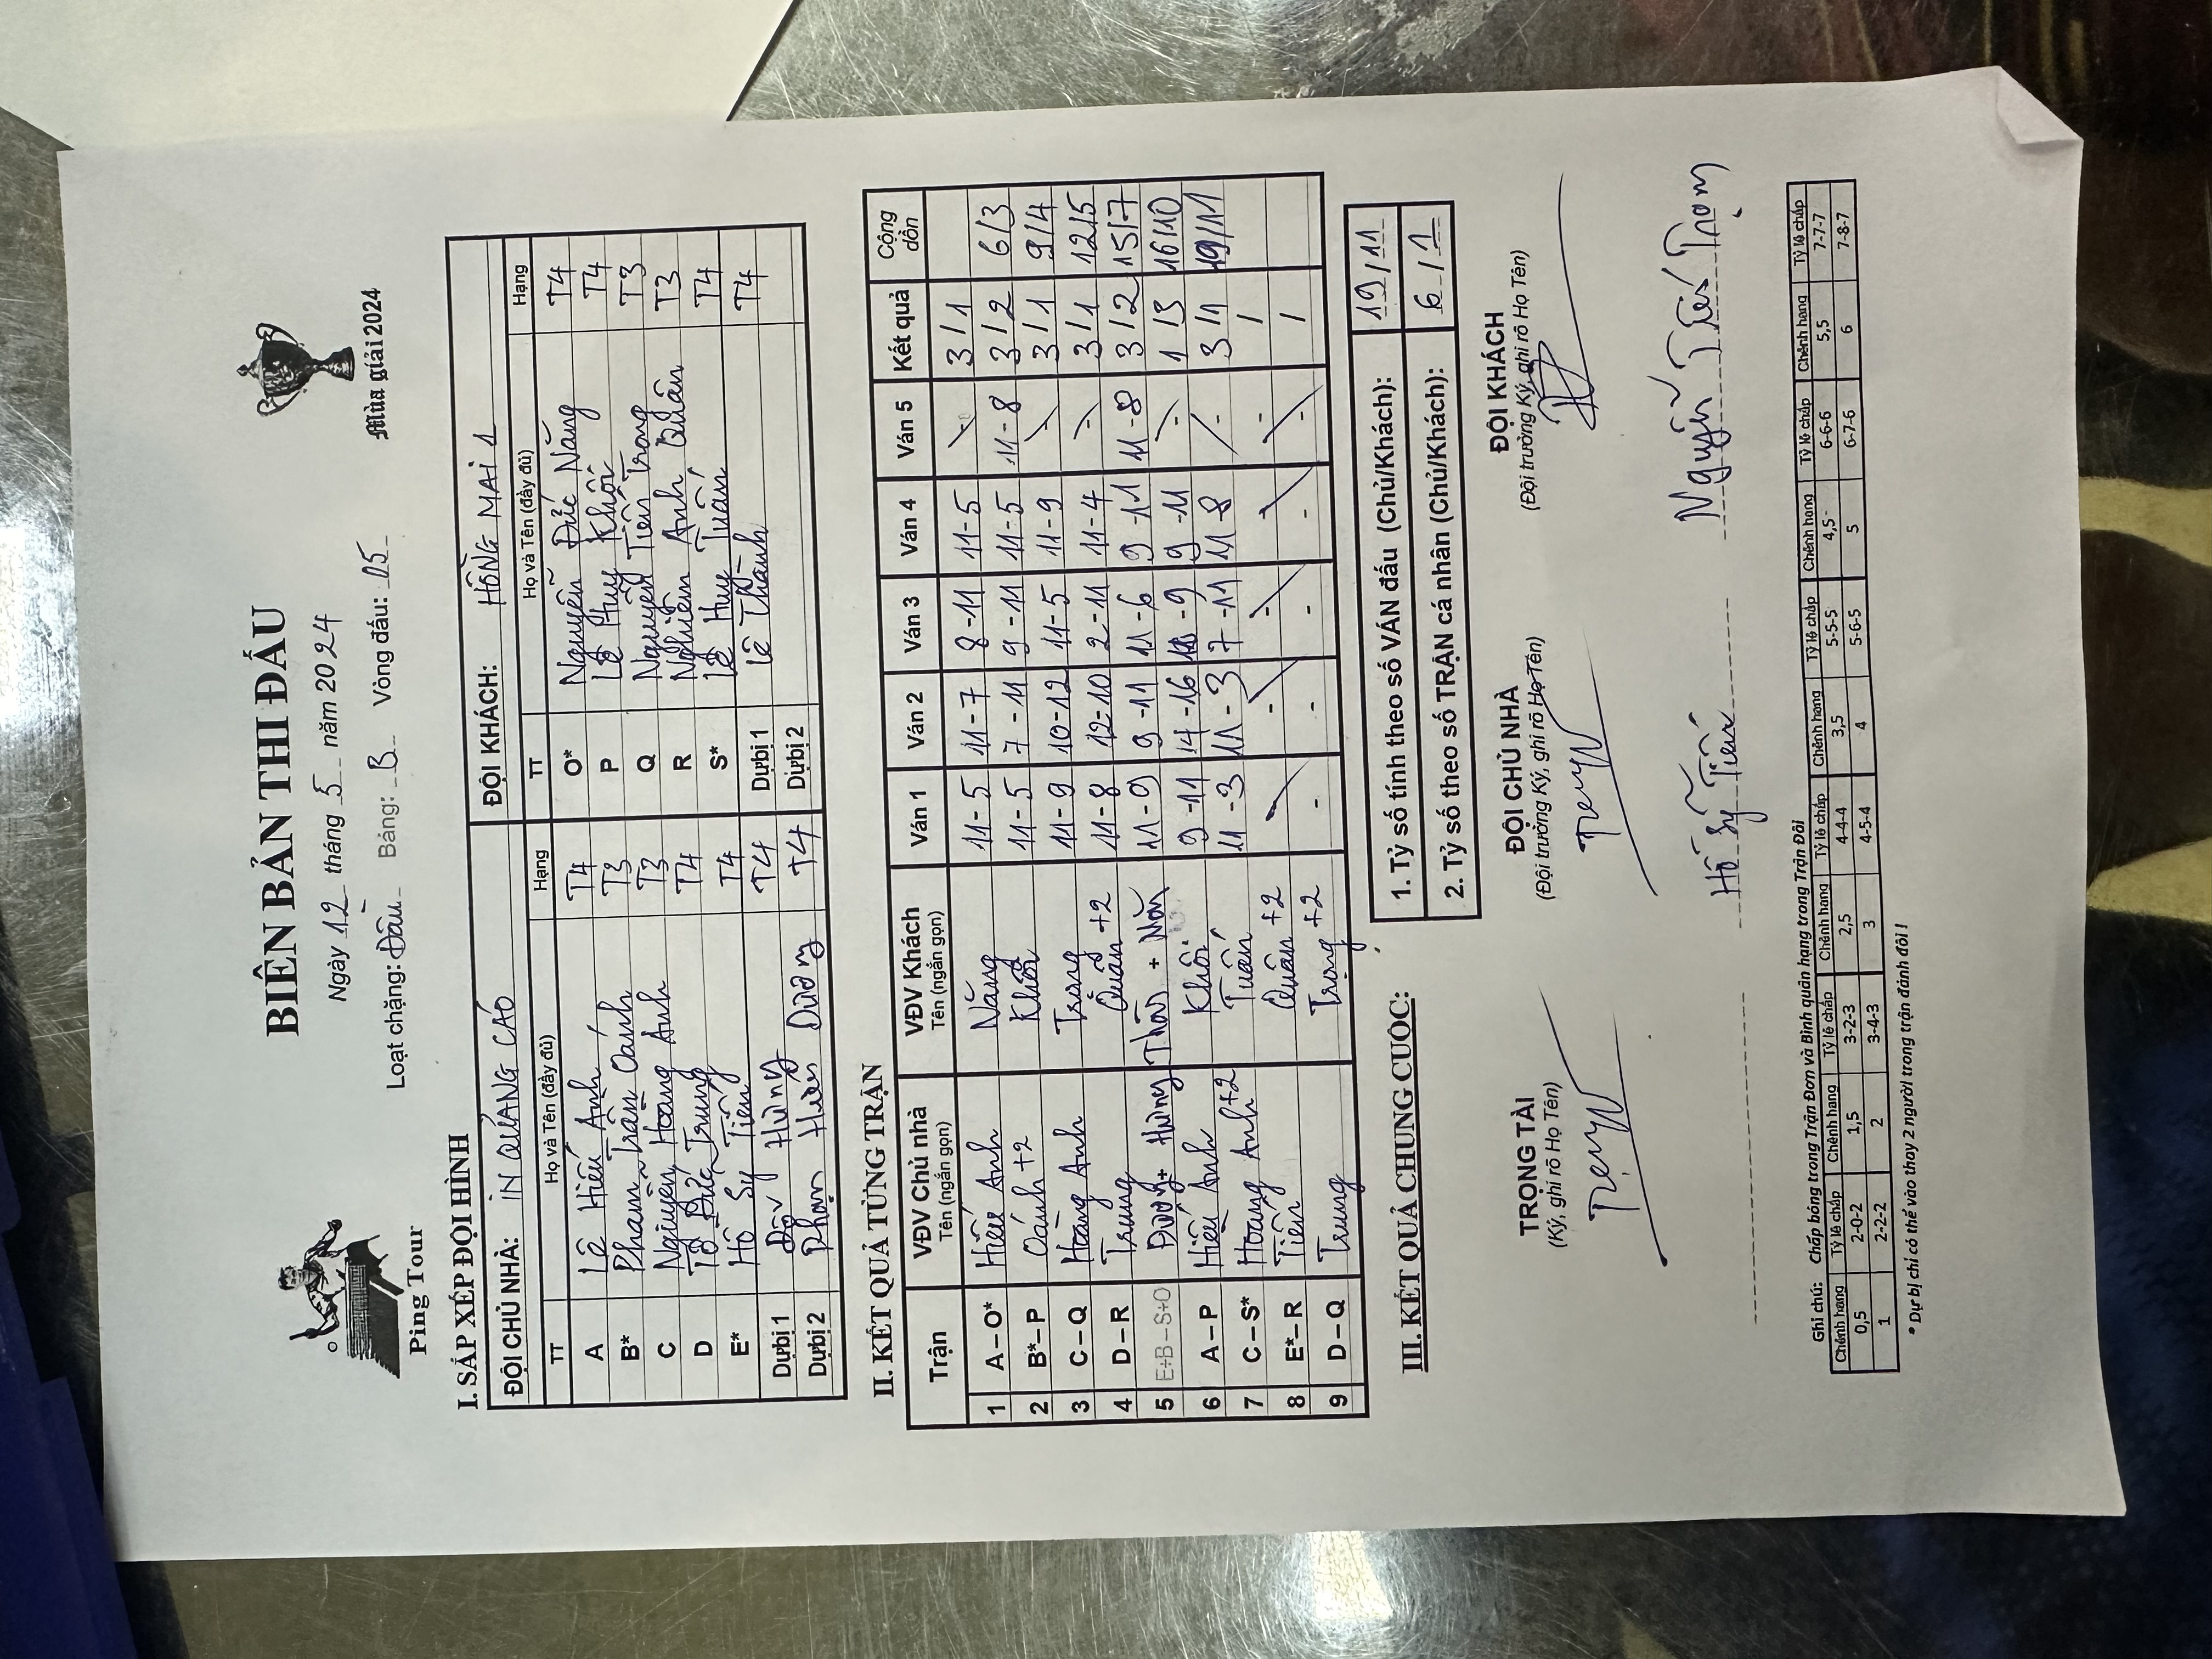 BIÊN BẢN THI ĐẤU
Ngày 12 tháng 5 năm 2024
Loạt chặng: Đầu Bảng: B Vòng đấu: 05
Ping Tour
Mùa giải 2024
I. SẮP XẾP ĐỘI HÌNH
ĐỘI CHỦ NHÀ: IN QUẢNG CÁO ĐỘI KHÁCH: HỒNG MAI 1
TT Họ và Tên (đầy đủ) Hạng TT Họ và Tên (đầy đủ) Hạng
A Lê Hiếu Anh T4 O* Nguyễn Đức Năng T4
B* Phạm Trần Oánh T3 P Lê Huy Khôi T4
C Nguyễn Hoàng Anh T3 Q Nguyễn Tiến Trọng T3
D Tô Đức Trung T4 R Nghiêm Anh Quân T3
E* Hồ Sỹ Tiến T4 S* Lê Huy Tuấn T4
Dự bị 1 Hùng T4 Dự bị 1 Lê Thành T4
Dự bị 2 Phạm Hiền Dương T4 Dự bị 2
II. KẾT QUẢ TỪNG TRẬN
Trận VĐV Chủ nhà Tên (ngắn gọn) VĐV Khách Tên (ngắn gọn) Ván 1 Ván 2 Ván 3 Ván 4 Ván 5 Kết quả Cộng dồn
1 A – O* Hiếu Anh Năng 11-5 11-7 8-11 11-5 - 3/1
2 B* – P Oánh +2 Khôi 11-5 7-11 9-11 11-5 11-8 3/2 6/3
3 C – Q Hoàng Anh Trọng 11-9 10-12 11-5 11-9 - 3/1 9/4
4 D – R Trung Quân +2 11-8 12-10 2-11 11-4 - 3/1 12/5
5 E+B – S+O Dương + Hùng + 11-9 9-11 11-6 9-11 11-8 3/2 15/7
6 A – P Hiếu Anh Khôi 9-11 14-16 -9 9-11 - 1/3 16/10
7 C – S* Hoàng Anh +2 Tuấn 11-3 11-3 7-11 11-8 - 3/1 19/11
8 E* – R Tiến Quân +2 - - - - - /
9 D – Q Trung Trọng +2 - - - - - /
III. KẾT QUẢ CHUNG CUỘC:
1. Tỷ số tính theo số VÁN đấu (Chủ/Khách): 19/11
2. Tỷ số theo số TRẬN cá nhân (Chủ/Khách): 6/1
TRỌNG TÀI ĐỘI CHỦ NHÀ ĐỘI KHÁCH
(Ký, ghi rõ Họ Tên) (Đội trưởng Ký, ghi rõ Họ Tên) (Đội trưởng Ký, ghi rõ Họ Tên)
Hồ Sỹ Tiến Nguyễn Tiến Trọng
Ghi chú: Chấp bóng trong Trận Đơn và Bình quân hạng trong Trận Đôi
Chênh hạng Tỷ lệ chấp Chênh hạng Tỷ lệ chấp Chênh hạng Tỷ lệ chấp Chênh hạng Tỷ lệ chấp Chênh hạng Tỷ lệ chấp Chênh hạng Tỷ lệ chấp
0,5 2-0-2 1,5 3-2-3 2,5 4-4-4 3,5 5-5-5 4,5 6-6-6 5,5 7-7-7
1 2-2-2 2 3-4-3 3 4-5-4 4 5-6-5 5 6-7-6 6 7-8-7
* Dự bị chỉ có thể vào thay 2 người trong trận đánh đôi !